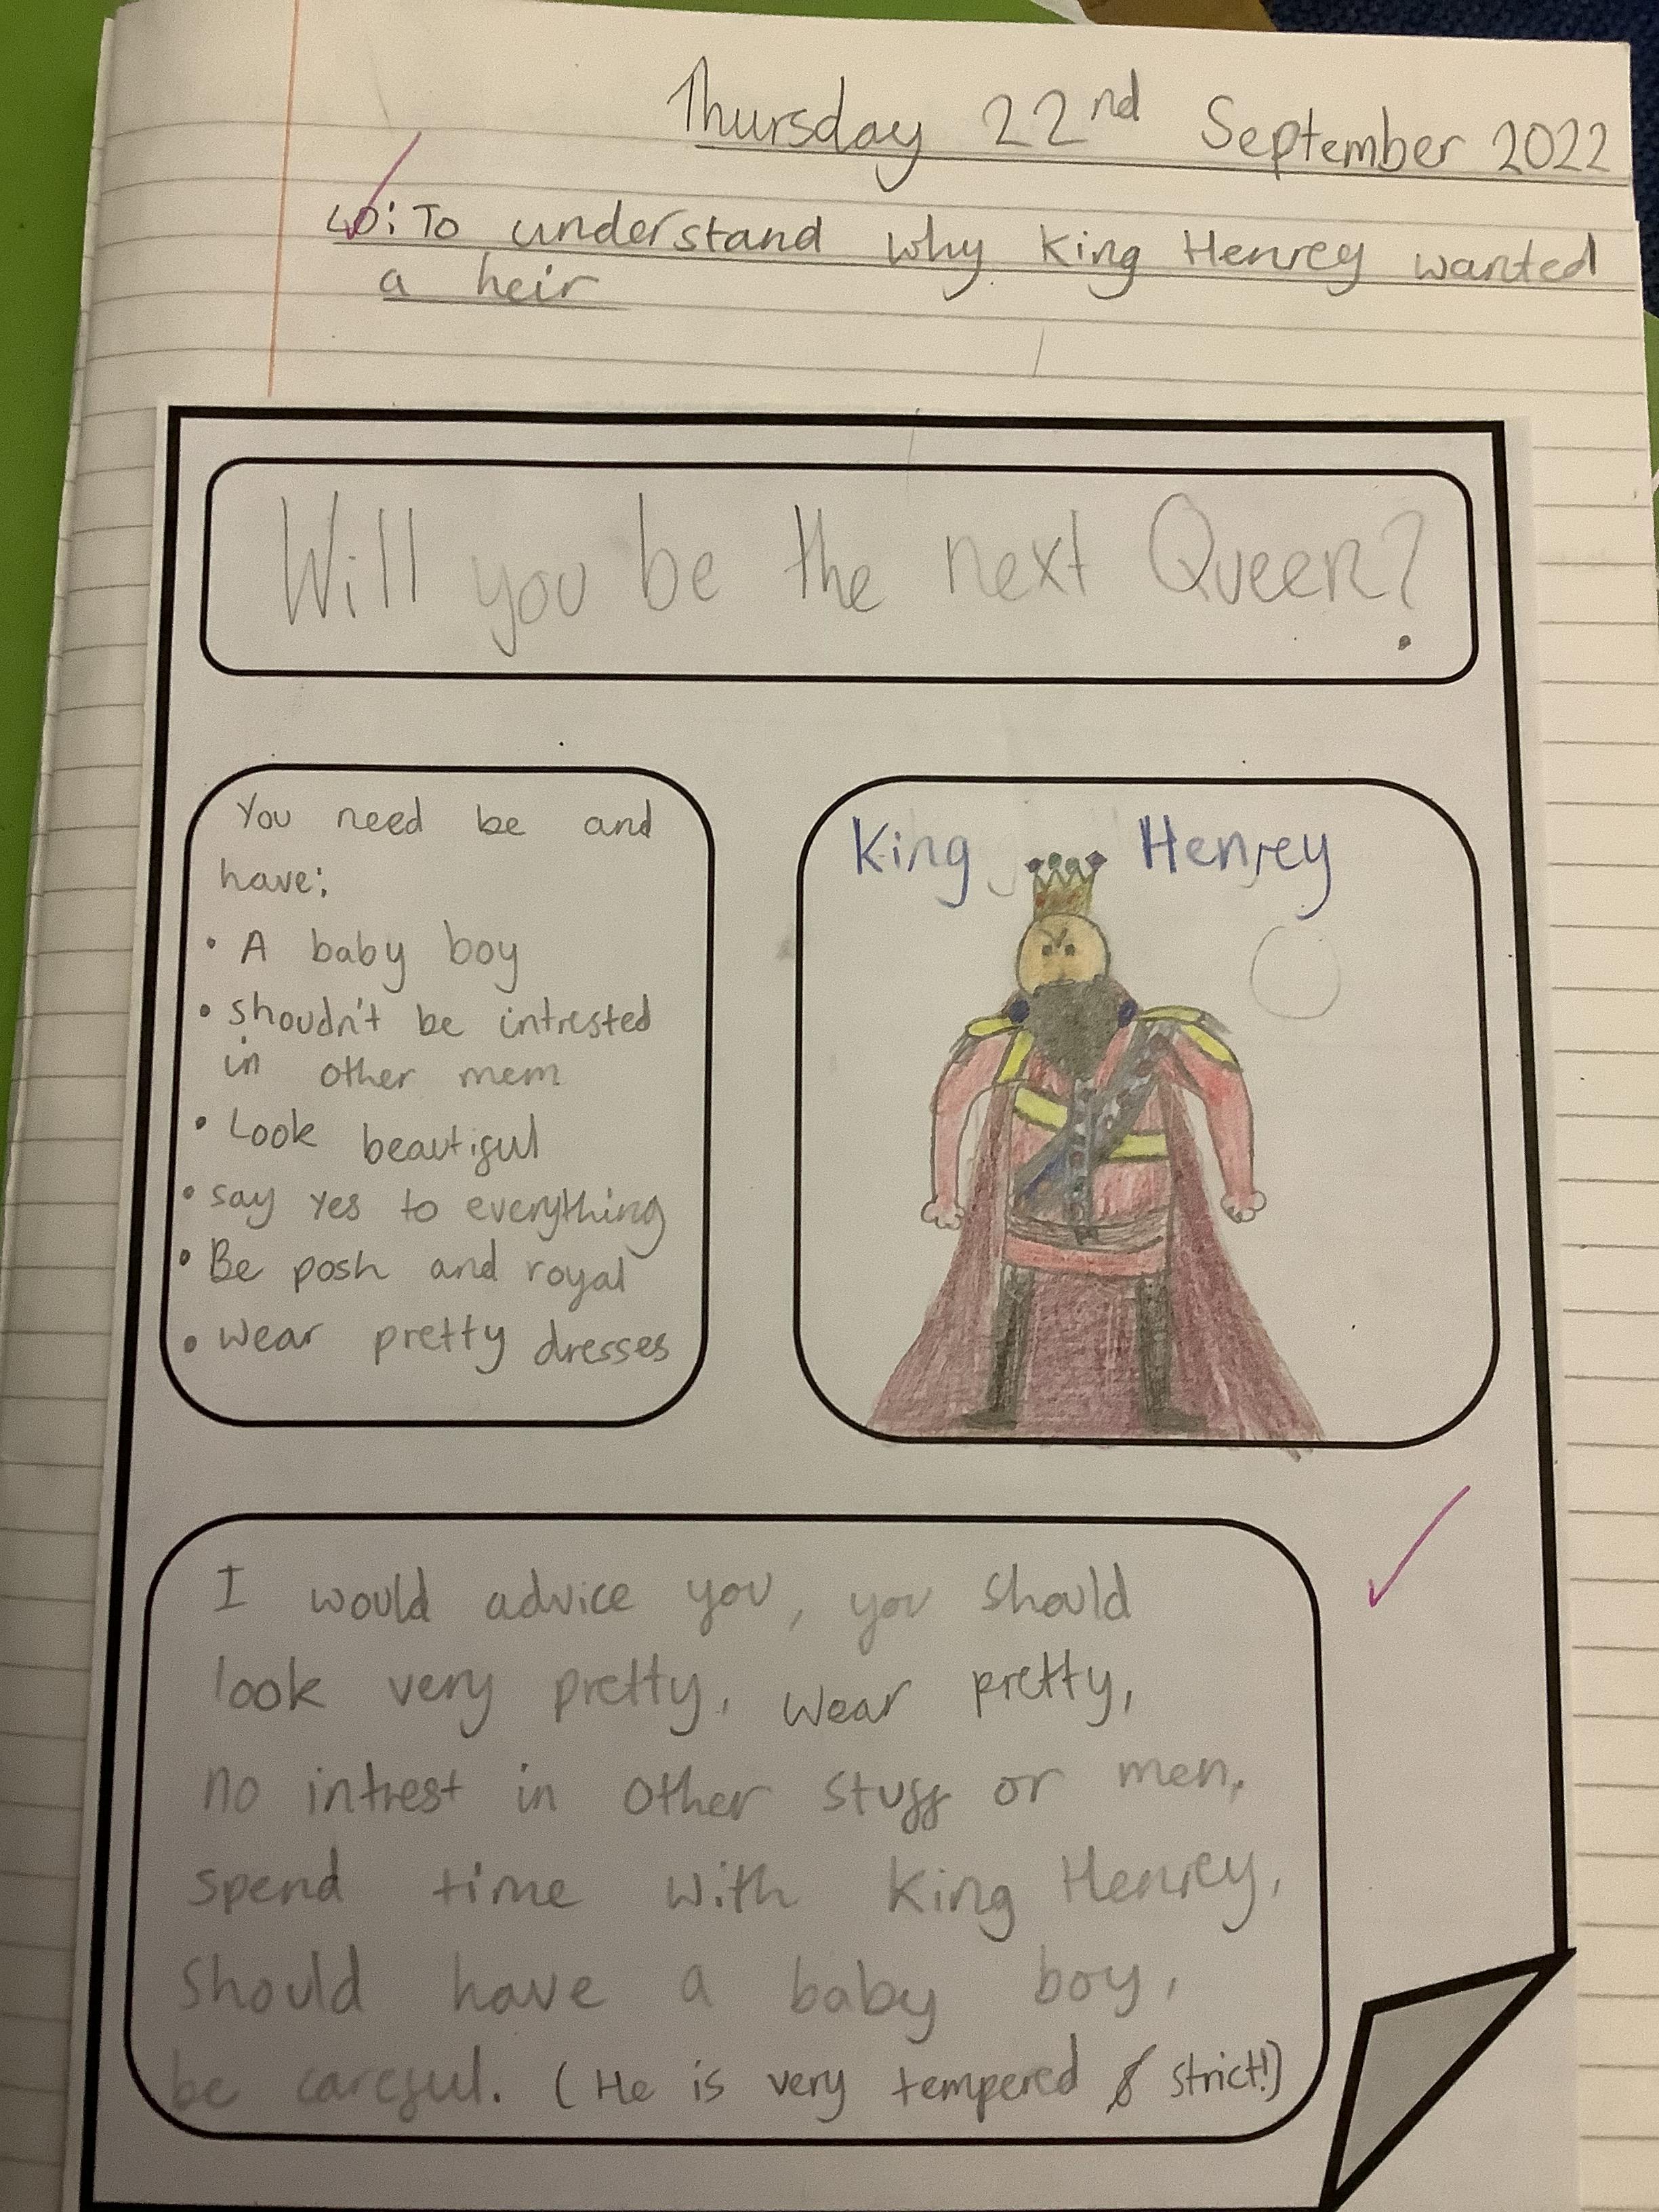 Thursday 22nd September 2022
LO: To understand why King Henrey wanted
a heir
Will you be the next Queen?
You need be and
have:
• A baby boy
• shoudn't be intrested
in other mem
• Look beautiful
• say yes to everything
• Be posh and royal
• Wear pretty dresses
King Henrey
I would advice you, you should
look very pretty, wear pretty,
no intrest in other stuff or men,
spend time with King Henrey,
should have a baby boy,
be careful. (He is very tempered & strict!)